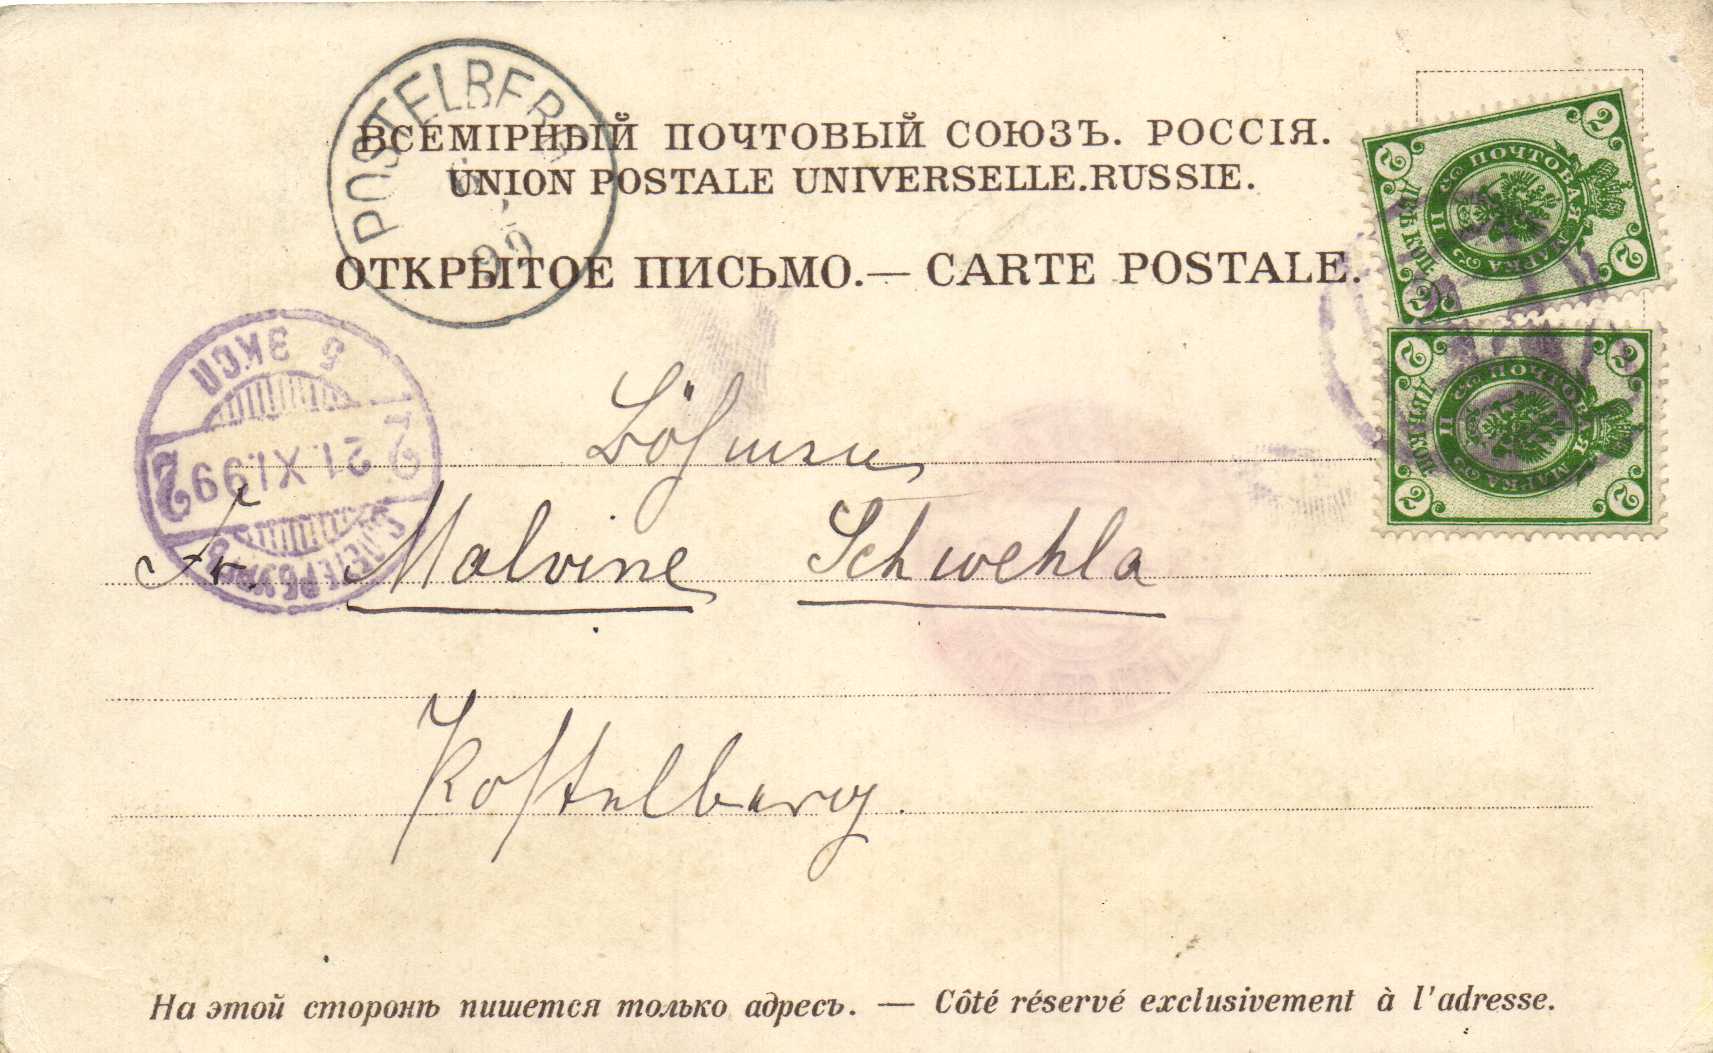 POSTELBERG
ВСЕМІРНЫЙ ПОЧТОВЫЙ СОЮЗЪ. РОССІЯ.
UNION POSTALE UNIVERSELLE. RUSSIE.
ОТКРЫТОЕ ПИСЬМО. — CARTE POSTALE.
2 2 ПОЧТОВАЯ МАРКА ДВѢ КОП. 2 2
2 2 ПОЧТОВАЯ МАРКА ДВѢ КОП. 2 2
5 ЭКСП
21.XI.99
С.ПЕТЕРБУРГЪ
Böhmen
Fr. Malvine Schwehla
Postelberg.
На этой сторонѣ пишется только адресъ. — Côté réservé exclusivement à l'adresse.